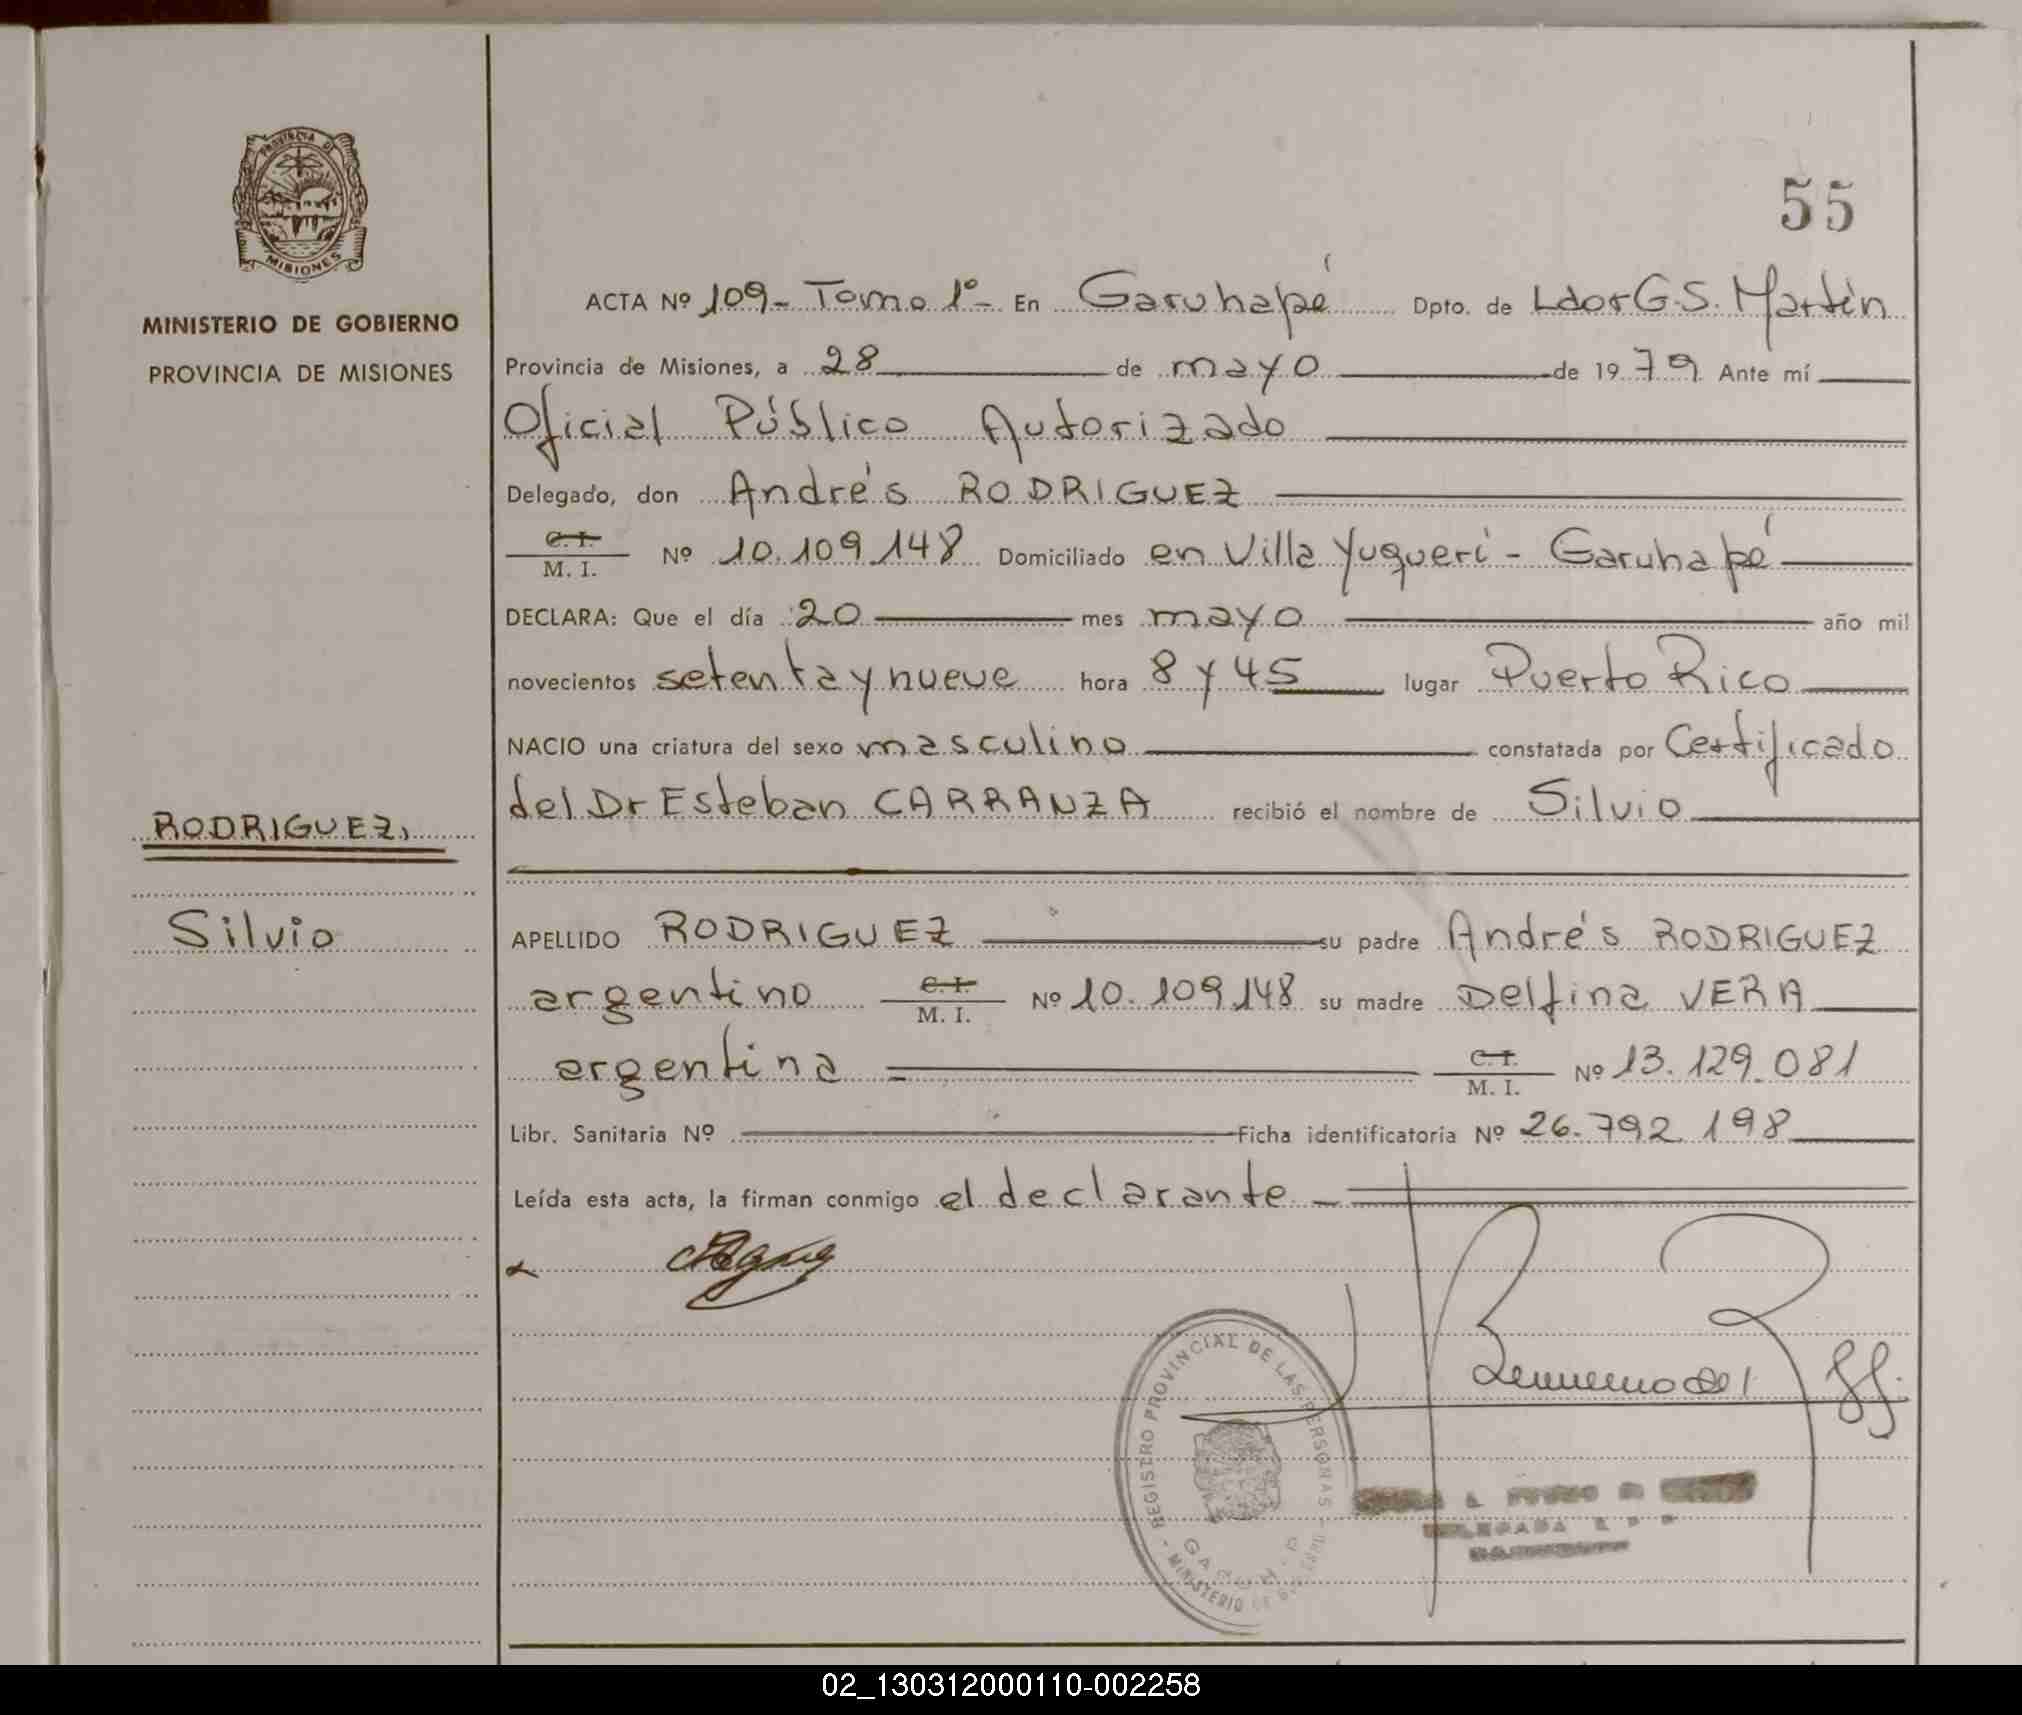 55
PROVINCIA DE
MISIONES
MINISTERIO DE GOBIERNO
PROVINCIA DE MISIONES
RODRIGUEZ,
Silvio
ACTA Nº 109- Tomo 1º- En Garuhapé Dpto. de Ldor G. S. Martín
Provincia de Misiones, a 28 de mayo de 1979 Ante mí
Oficial Público Autorizado
Delegado, don Andrés RODRIGUEZ
C. I.
M. I. Nº 10.109.148 Domiciliado en Villa Yuquerí - Garuhapé
DECLARA: Que el día 20 mes mayo año mil
novecientos setenta y nueve hora 8 y 45 lugar Puerto Rico
NACIO una criatura del sexo masculino constatada por Certificado
del Dr Esteban CARRANZA recibió el nombre de Silvio
APELLIDO RODRIGUEZ su padre Andrés RODRIGUEZ
argentino C. I.
M. I. Nº 10.109.148 su madre Delfina VERA
argentina C. I.
M. I. Nº 13.129.081
Libr. Sanitaria Nº Ficha identificatoria Nº 26.792.198
Leída esta acta, la firman conmigo el declarante -
REGISTRO PROVINCIAL DE LAS PERSONAS - MINISTERIO DE
DELEGADA
02_130312000110-002258